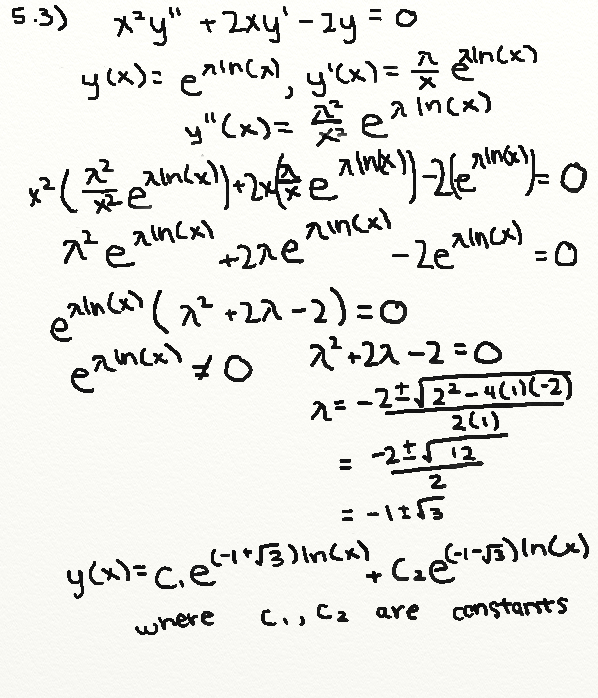 5.3) x²y" + 2xy' - 2y = 0
y(x) = e^(λln(x)), y'(x) = λ/x e^(λln(x))
y"(x) = λ²/x² e^(λln(x))
x²(λ²/x² e^(λln(x))) + 2x(λ/x e^(λln(x))) - 2(e^(λln(x))) = 0
λ² e^(λln(x)) + 2λe^(λln(x)) - 2e^(λln(x)) = 0
e^(λln(x)) (λ² + 2λ - 2) = 0
e^(λln(x)) ≠ 0 λ² + 2λ - 2 = 0
λ = -2 ± √(2² - 4(1)(-2)) / 2(1)
= -2 ± √12 / 2
= -1 ± √3
y(x) = C₁e^((-1+√3)ln(x)) + C₂e^((-1-√3)ln(x))
where C₁, C₂ are constants